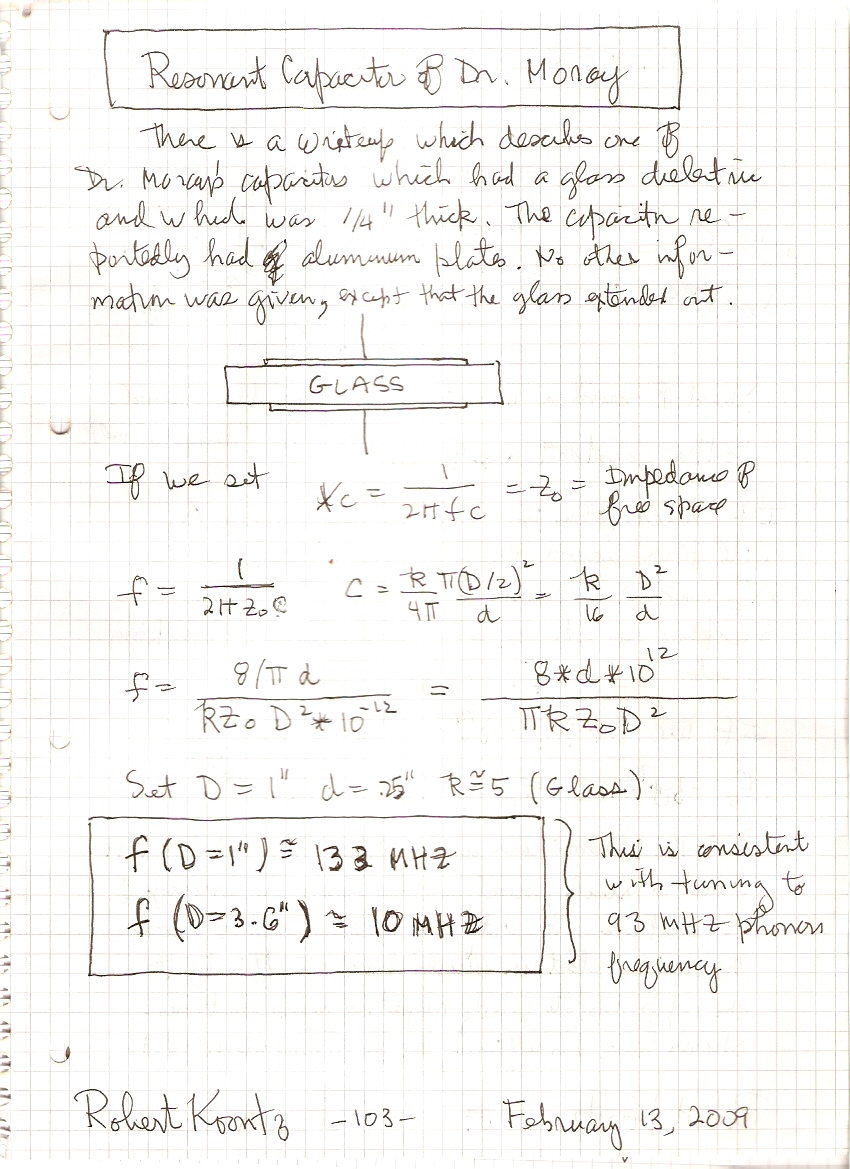 Resonant Capacitor of Dr. Moray
There is a writeup which describes one of
Dr. Moray's capacitors which had a glass dielectric
and which was 1/4" thick. The capacitor re-
portedly had aluminum plates. No other infor-
mation was given, except that the glass extended out.
GLASS
If we set Xc = 1/(2πfC) = Z₀ = Impedance of free space
f = 1/(2πZ₀C) C = k/4π π(D/2)²/d = k/16 D²/d
f = (8/π d)/(kZ₀D²*10⁻¹²) = (8*d*10¹²)/(πkZ₀D²)
Set D = 1" d = .25" k ≅ 5 (Glass).
f (D=1") ≅ 133 MHZ
f (D=3.6") ≅ 10 MHZ
This is consistent
with tuning to
93 MHZ phonon
frequency
Robert Koontz -103- February 13, 2009